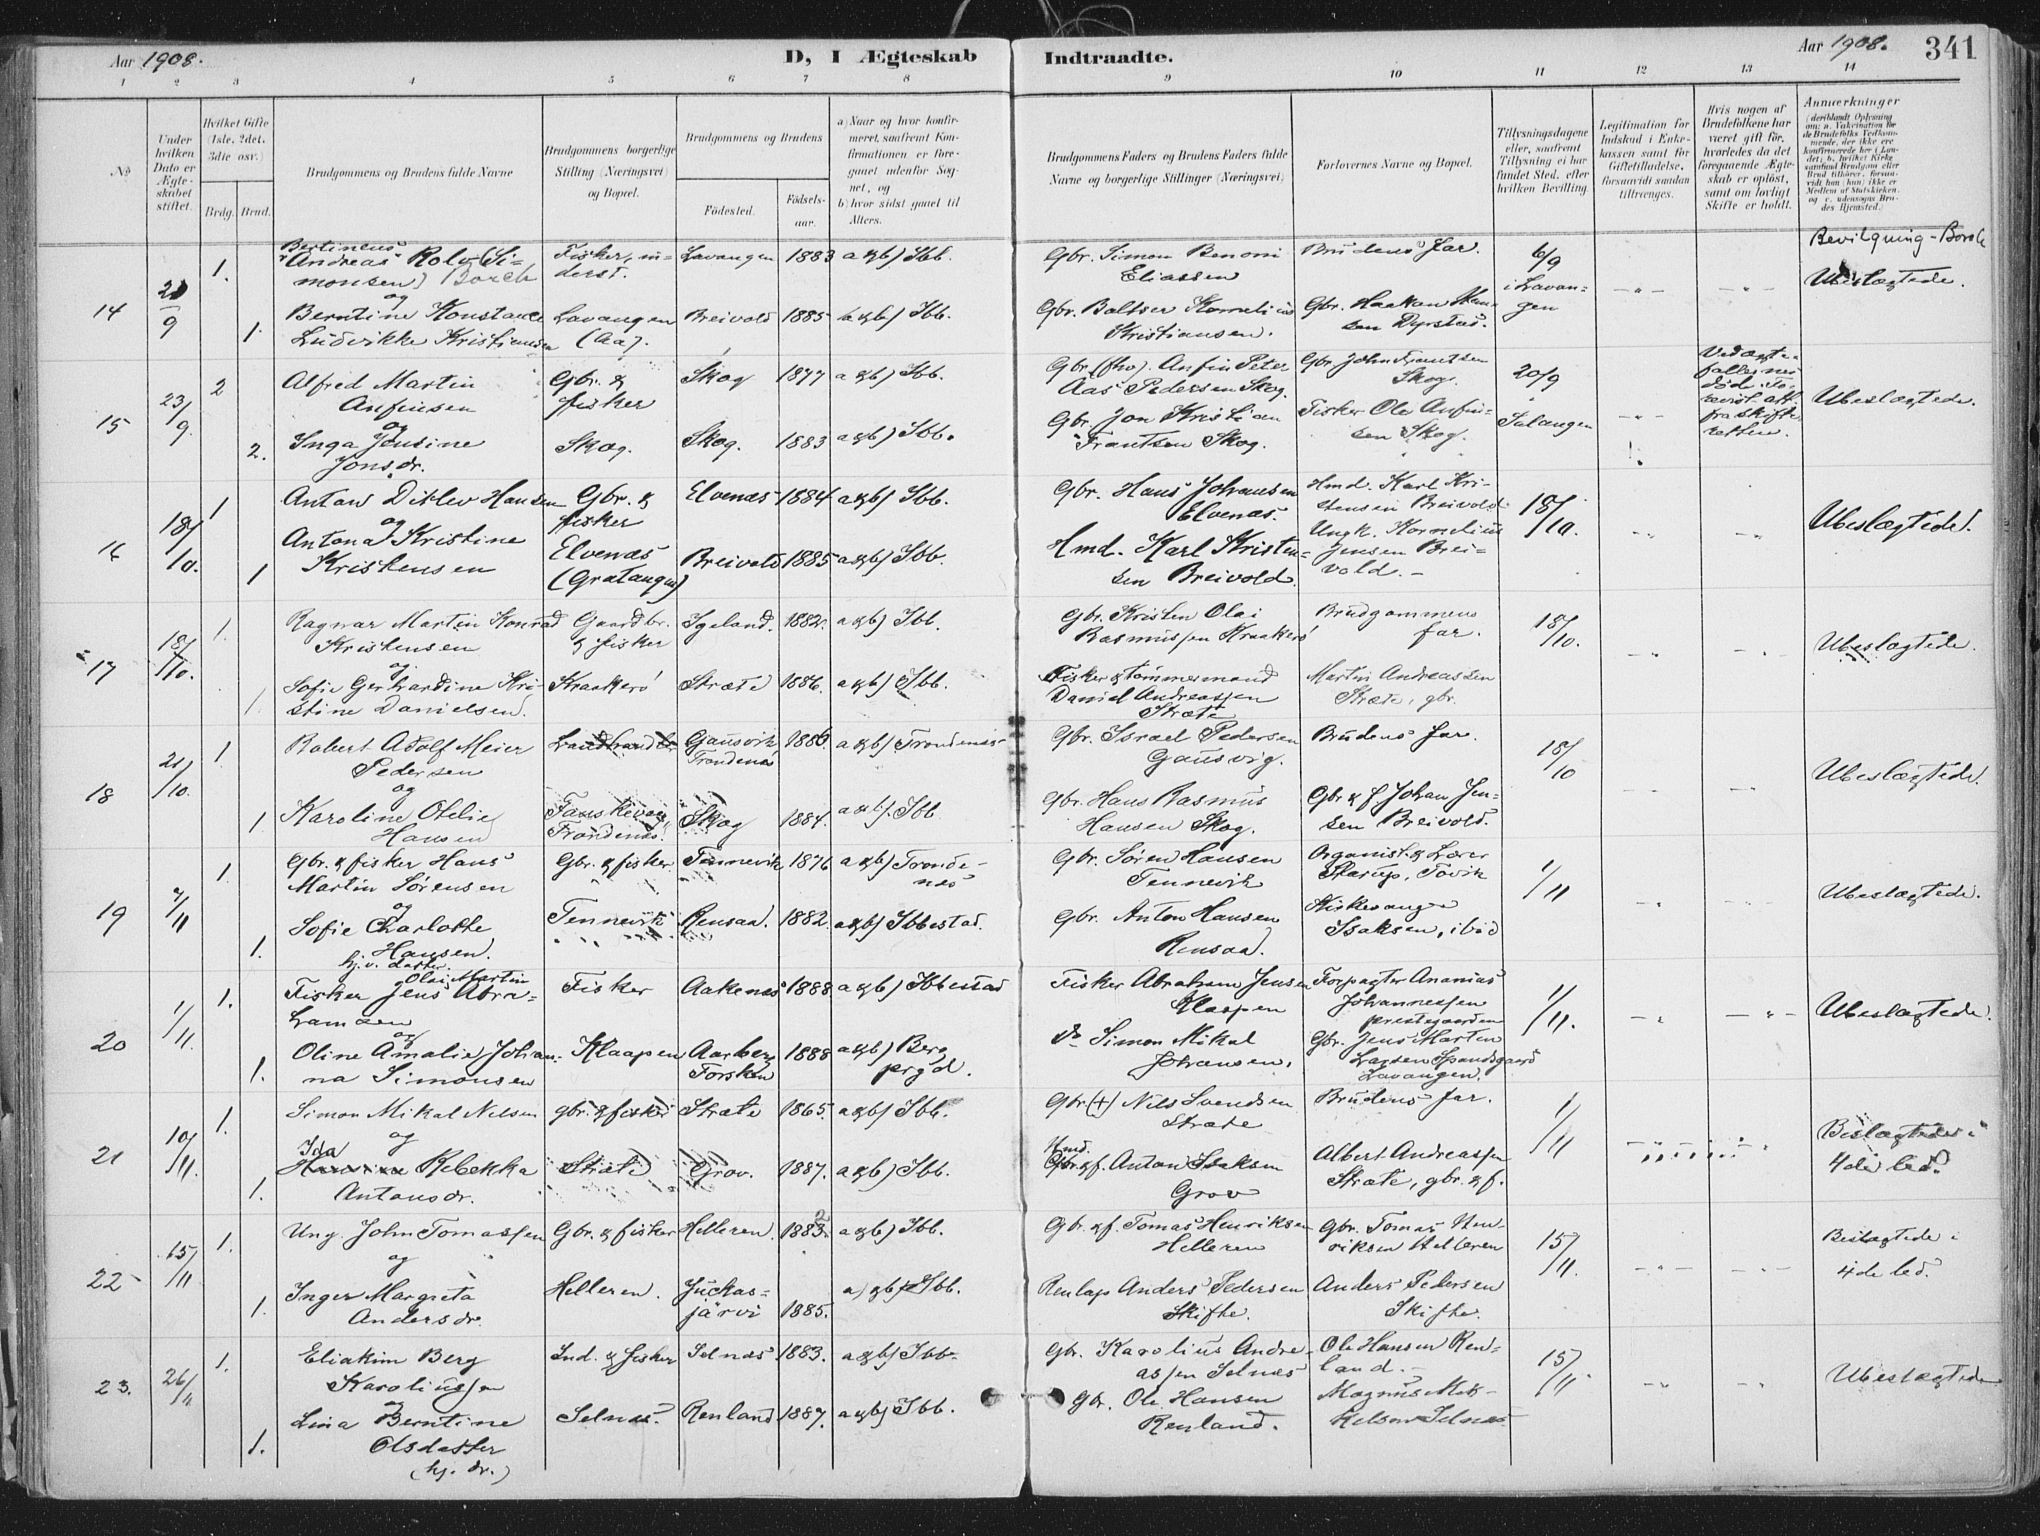 Aar 1908.
D, I Ægteskab Indtraadte.
Aar 1908.
341
1 2 3 4 5 6 7 8 9 10 11 12 13 14
No
Under hvilken Dato er Ægteskabet stiftet.
Hvilket Gifte (1ste, 2det, 3die osv.)
Brdg. Brud.
Brudgommens og Brudens fulde Navne
Brudgommens borgerlige Stilling (Næringsvei) og Bopæl.
Brudgommens og Brudens
Fødested. Fødselsaar.
a) Naar og hvor konfirmeret, saafremt Konfirmationen er foregaaet udenfor Sognet, og
b) hvor sidst gaaet til Alters.
Brudgommens Faders og Brudens Faders fulde Navne og borgerlige Stillinger (Næringsvei)
Forlovernes Navne og Bopæl.
Tillysningsdagene eller, saafremt Tillysning ei har fundet Sted, efter hvilken Bevilling.
Legitimation for Indskud i Enkekassen samt for Giftetilladelse, forsaavidt saadan tiltrænges.
Hvis nogen af Brudefolkene har været gift før, hvorledes da det foregaaende Ægteskab er opløst, samt om lovligt Skifte er holdt.
Anmærkninger
14
1.
Bertineus
Andreas Rolv (Simonsen) Borch
og
1.
Berntine Konstance
Ludvikke Kristiansen
Fisker, inderst.
Lavangen (Aa).
Lavangen 1883 a & b) Ibb.
Breivold 1885 a & b) Ibb.
Gbr. Simon Benoni
Eliassen
Gbr. Baltser Kornelius
Kristiansen.
Brudens far.
Gbr. Haakon Hansen Dyrstad.
6/9
i Lavangen
Bevilgning - Borch
Ubeslægtede.
15
23/9.
2
Alfred Martin
Anfinsen
og
2.
Inga Jonsine
Jonsdr.
Gbr. & fisker
Skog.
Skog 1877 a & b) Ibb.
Skog. 1883 a & b) Ibb.
Gbr. (fhv). Anfin Peter
Aas Pedersen Skog.
Gbr. Jon Kristian
Frantsen Skog.
Gbr John Frantsen
Skog.
Fisker Ole Anfinsen Skog.
20/9
Salangen
Ubeslægtede.
16
18/10.
1
Anton Ditlev Hansen
og
1
Antona Kristine
Kristensen
Gbr. & fisker
Elvenæs
(Gratangen)
Elvenæs 1884 a & b) Ibb.
Breivold 1885 a & b) Ibb.
Gbr. Hans Johansen
Elvenæs.
Hmd. Karl Kristensen Breivold.
Hmd. Karl Kristensen Breivold
Ungk. Kornelius
Jensen Breivold.
18/10.
Ubeslægtede.
17
18/10.
1.
Ragnar Martin Konrad
Kristensen
og
1.
Sofie Gerhardine Kristine Danielsen.
Gaardbr. & fisker
Kraakerø
Igeland. 1882. a & b) Ibb.
Stræte 1886. a & b) Ibb.
Gbr. Kristen Olai
Rasmussen Kraakerø
Fisker & tømmermand
Daniel Andreassen
Stræte
Brudgommens
far.
Martin Andreassen
Stræte, gbr.
18/10.
Ubeslægtede.
18
21/10.
1
Robert Adolf Meier
Pedersen
og
1
Karoline Otelie
Hansen
Landhandler
Fauskevaag
Trondenæs
Gausvik
Trondenæs 1886. a & b) Trondenæs
Skog 1884. a & b). Ibb
Gbr. Israel Pedersen
Gausvig.
Gbr. Hans Rasmus
Hansen Skog.
Brudens far.
Gbr & f Johan Jensen Breivold.
18/10
Ubeslægtede.
19
1.
Gbr. & fisker Hans
Martin Sørensen
og
1.
Sofie Charlotte
Hansen.
Gbr. & fisker
Tennevik
Tennevik 1876 a & b) Trondenæs
Rensaa. 1882. a & b) Ibbestad.
Gbr. Søren Hansen
Tennevik
Gbr. Anton Hansen
Rensaa.
Organist & Lærer
Starup, Tovik
Isaksen, ibid
1/11
Ubeslægtede.
20
1/11.
1.
Fisker Jens Olai Martin Abrahamsen
og
1.
Oline Amalie Johanna Simonsen
Fisker
Klaapen
Aakenes 1888 a & b) Ibbestad
Torsken 1888 a & b) Berg prgd.
Fisker Abraham Jensen
Klaapen
do Simon Mikal
Johansen.
Forpagter Ananias
Johannessen
prestegaarden
Gbr. Jens Martin
Larsen Spandsgaard
Lavangen.
1/11.
Ubeslægtede.
21
10/11.
1.
Simon Mikal Nilsen
og
1.
Ida Rebekka
Antonsdr.
gbr. & fisker
Stræte
Stræte 1865. a & b) Ibb.
Grov. 1887. a & b) Ibb.
Gbr (+) Nils Svendsen
Stræte
Hmd.
Gbr. & f. Anton Isaksen
Grov
Brudens far.
Albert Andreassen
Stræte, gbr. & f.
1/11
Beslægtede i
4de led.
22
15/11
1.
Ung. John Tomassen
og
1.
Inger Margreta
Andersdr.
Gbr. & fisker
Helleren.
Helleren. 1883. 2 a & b) Ibb.
Juckasjärvi 1885. a) & b) Ibb.
Gbr. & f. Tomas Henriksen
Helleren
Renlap Anders Pedersen
Skifte.
Gbr. Tomas Henriksen Helleren
Anders Pedersen
Skifte.
15/11.
Beslægtede i
4de led.
23.
26/11
1.
Eliakim Berg
Karoliussen
og
1.
Lina Berntine
Olsdatter
(hj. dr.)
Ind. & fisker
Selnæs.
Selnæs 1883. a & b) Ibb.
Renland 1887. a & b) Ibb.
Gbr. Karolius Andreassen Selnæs
gbr. Ole Hansen
Renland.
Ole Hansen Renland.
Magnus Mikkelsen Selnæs
15/11
Ubeslægtede